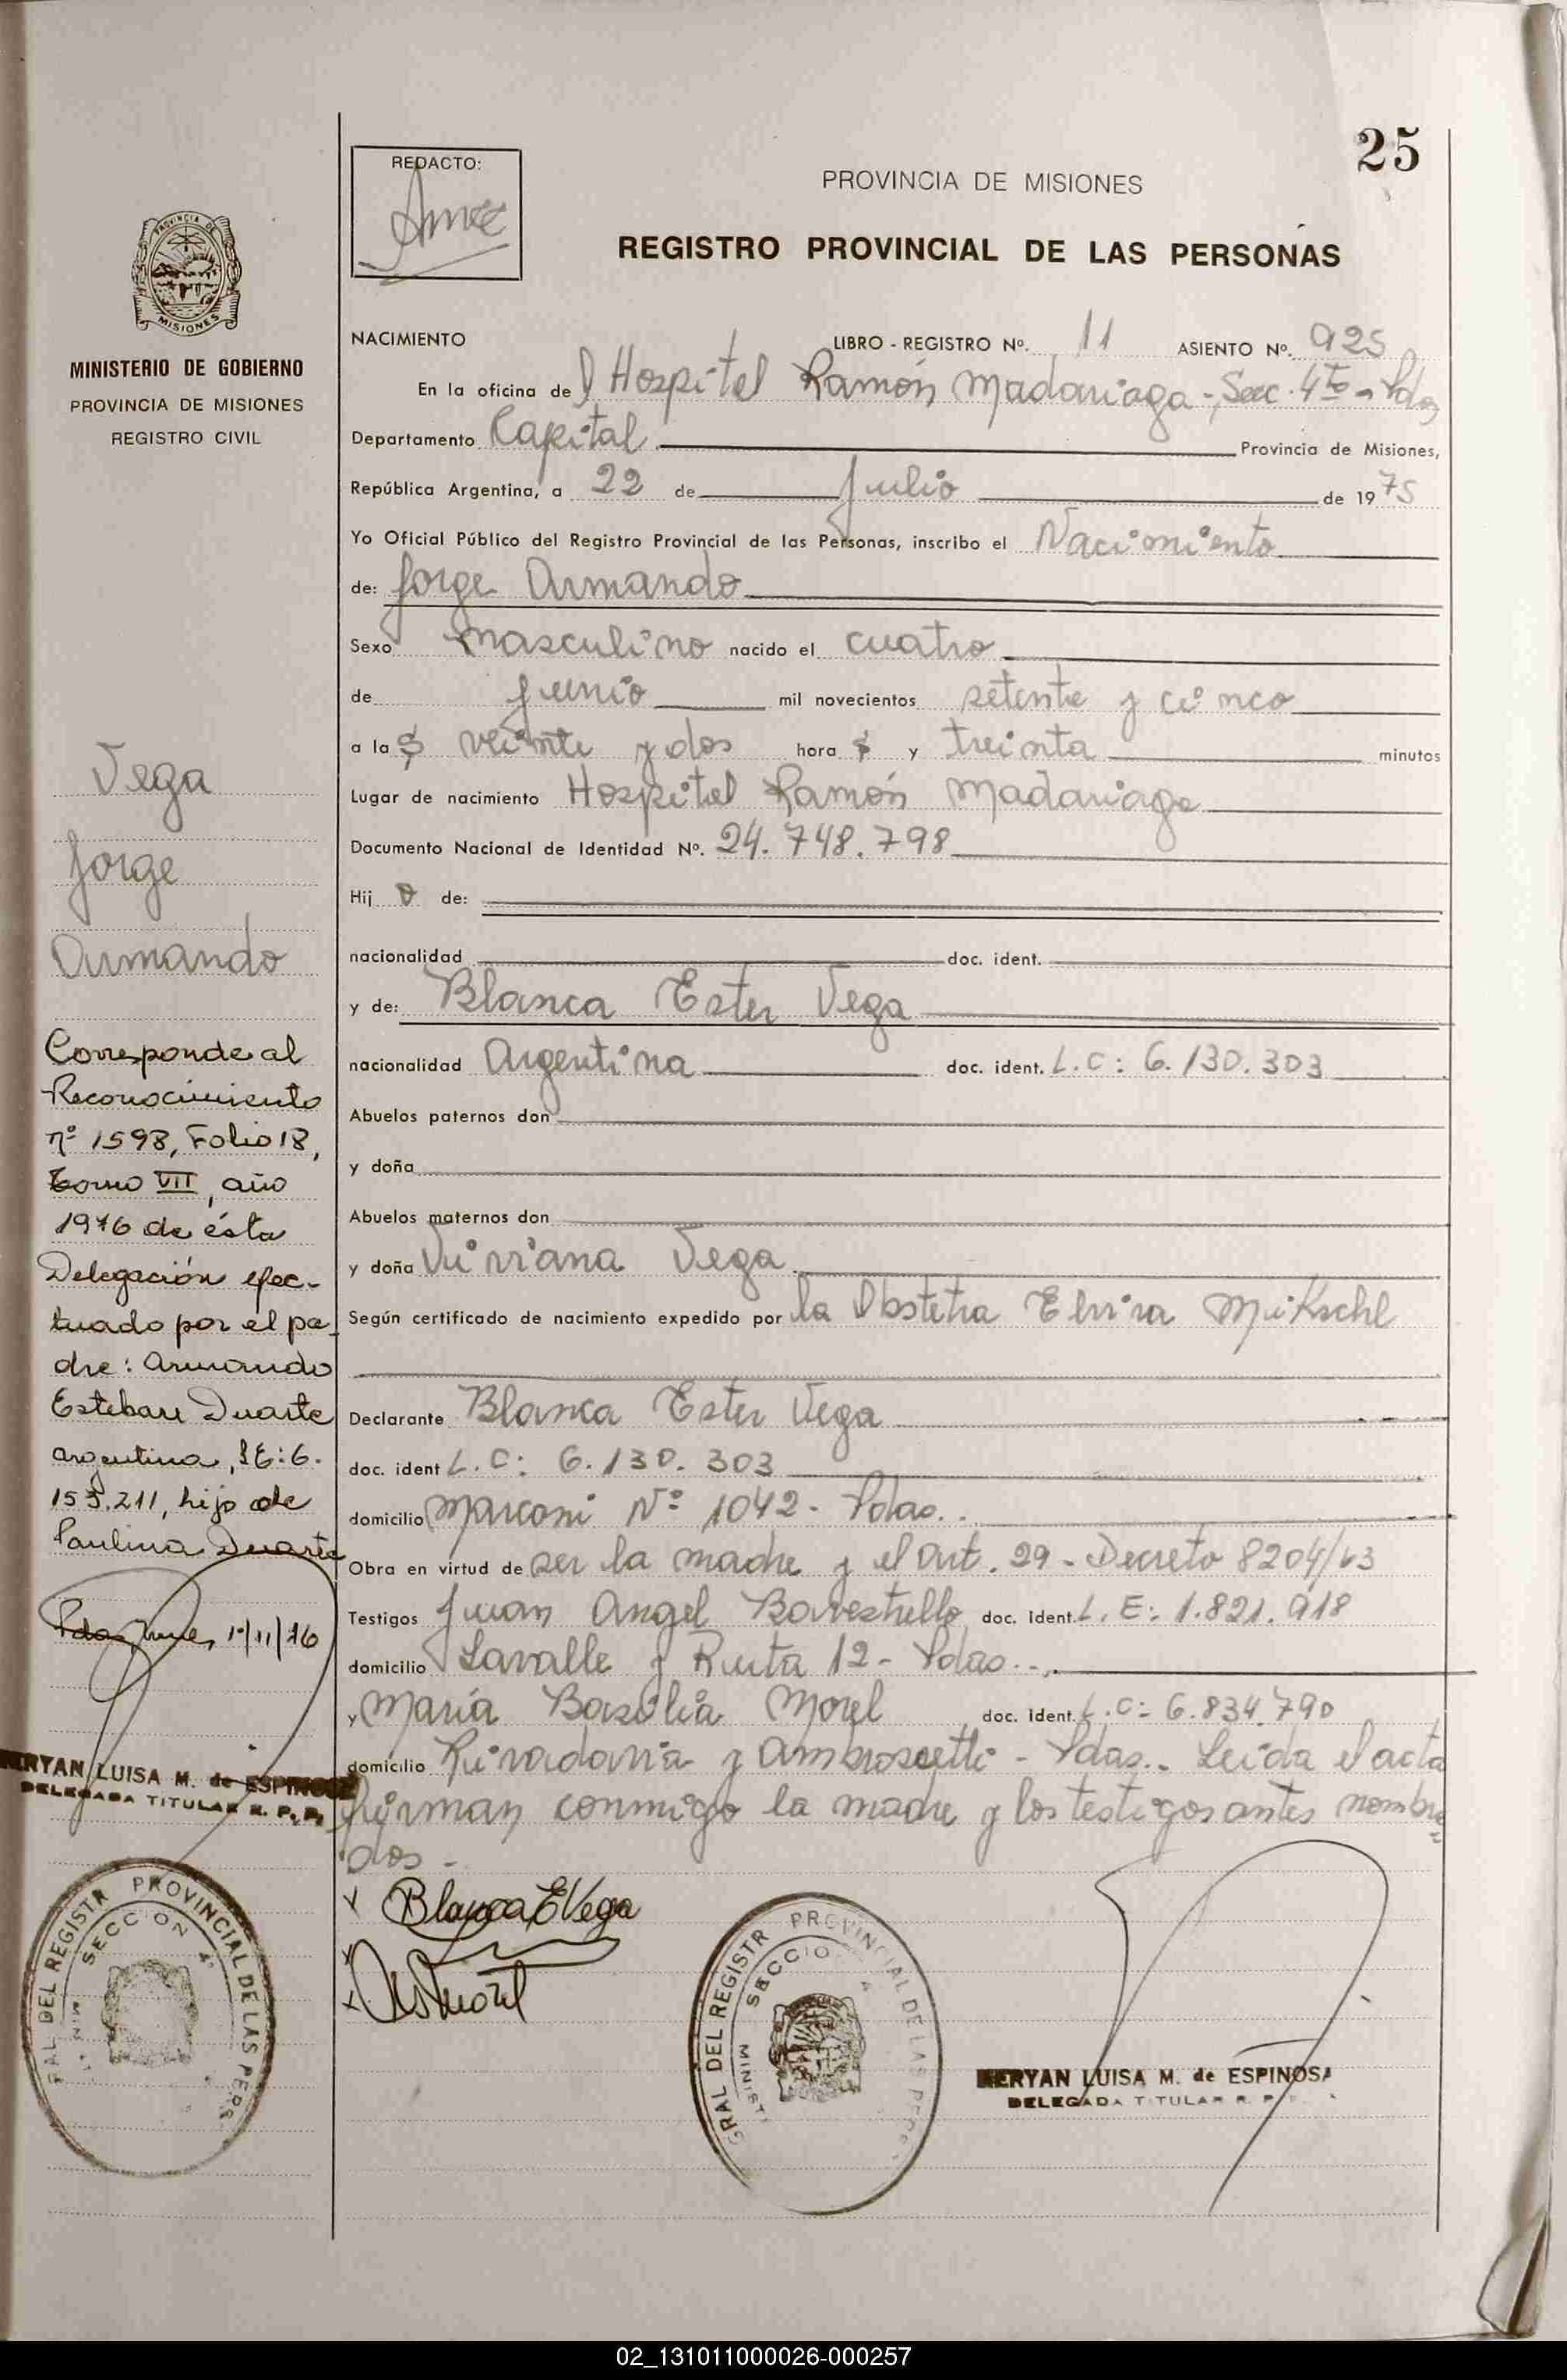 25
REDACTO:
PROVINCIA DE MISIONES
REGISTRO PROVINCIAL DE LAS PERSONAS
MINISTERIO DE GOBIERNO
PROVINCIA DE MISIONES
REGISTRO CIVIL
NACIMIENTO LIBRO - REGISTRO Nº. 11 ASIENTO Nº. 925
En la oficina del Hospital Ramón Madariaga -, Secc. 4ta - Pdas
Departamento Capital Provincia de Misiones,
República Argentina, a 22 de Julio de 1975
Yo Oficial Público del Registro Provincial de las Personas, inscribo el Nacimiento
de: Jorge Armando
Sexo masculino nacido el cuatro
de junio mil novecientos setenta y cinco
a las veinte y dos horas y treinta minutos
Lugar de nacimiento Hospital Ramón Madariaga
Documento Nacional de Identidad Nº. 24.748.798
Hijo de:
nacionalidad doc. ident.
y de: Blanca Ester Vega
nacionalidad Argentina doc. ident. L.C: 6.130.303
Abuelos paternos don
y doña
Abuelos maternos don
y doña Viviana Vega
Según certificado de nacimiento expedido por la Obstetra Elvira Mikschl
Declarante Blanca Ester Vega
doc. ident L.C: 6.130.303
domicilio Marconi Nº 1042 - Pdas..
Obra en virtud de ser la madre y el Art. 29 - Decreto 8204/63
Testigos Juan Angel Bavestrello doc. ident. L.E: 1.821.918
domicilio Lavalle y Ruta 12 - Pdas..
y María Basilia Morel doc. ident. L.C: 6.834.790
domicilio Rivadavia y Ambrosetti - Pdas.. Leida el acta
firman conmigo la madre y los testigos antes nombra=
dos -
Blanca E Vega
MERYAN LUISA M. de ESPINOSA
DELEGADA TITULAR R. P. P.
GRAL DEL REGISTR PROVINCIAL DE LAS PERS
SECCION 4ª
MINIST
Vega
Jorge
Armando
Corresponde al
Reconocimiento
nº 1598, Folio 18,
Tomo VII, año
1976 de ésta
Delegación efec-
tuado por el pa-
dre: Armando
Esteban Duarte
argentino, LE: 6.
153.211, hijo de
Paulina Duarte
Pdas, Mnes, 1º/11/76
MERYAN LUISA M. de ESPINOSA
DELEGADA TITULAR R. P. P.
RAL DEL REGISTR PROVINCIAL DE LAS PERS
SECCION 4ª
MINIS
02_131011000026-000257